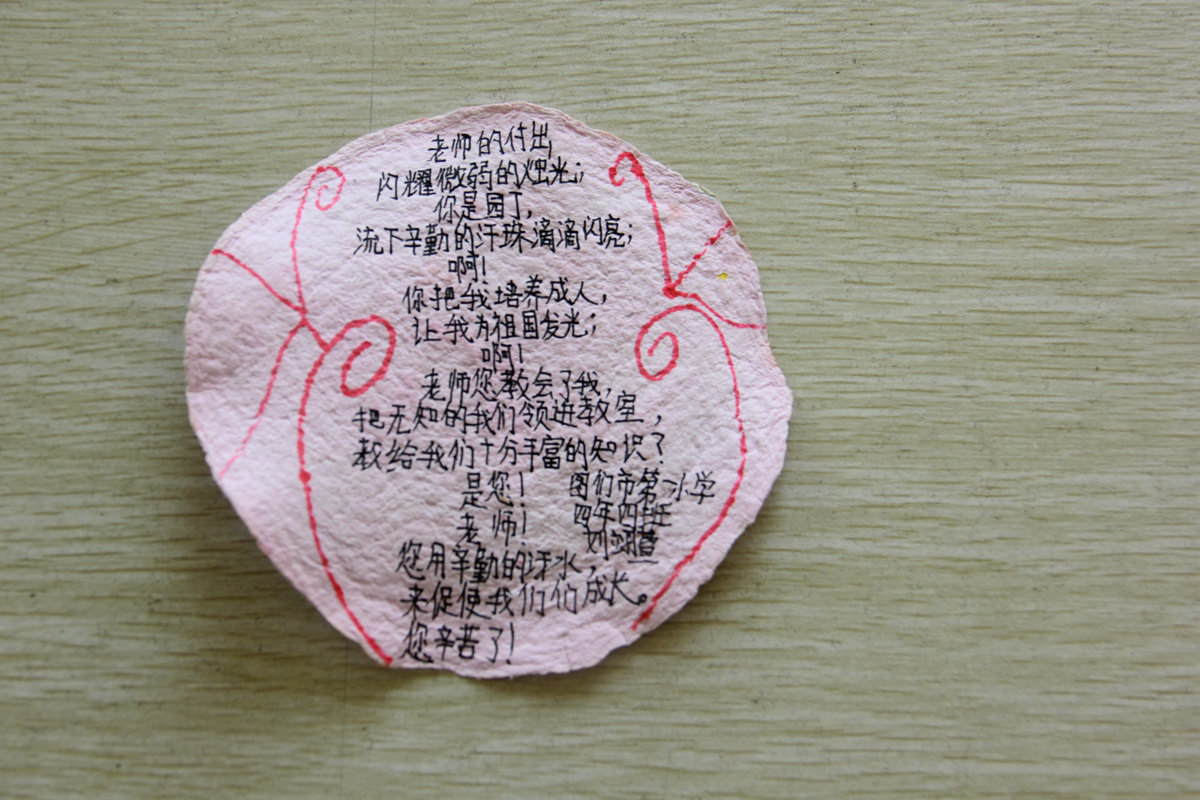 老师的付出,
闪耀微弱的烛光;
你是园丁,
流下辛勤的汗珠滴滴闪亮;
啊!
你把我培养成人,
让我为祖国发光;
啊!
老师您教会了我,
把无知的我们领进教室,
教给我们十分丰富的知识?
是您!
老师!
您用辛勤的汗水,
来促使我们们成长。
您辛苦了!
图们市第一小学
四年四班
刘翊萱